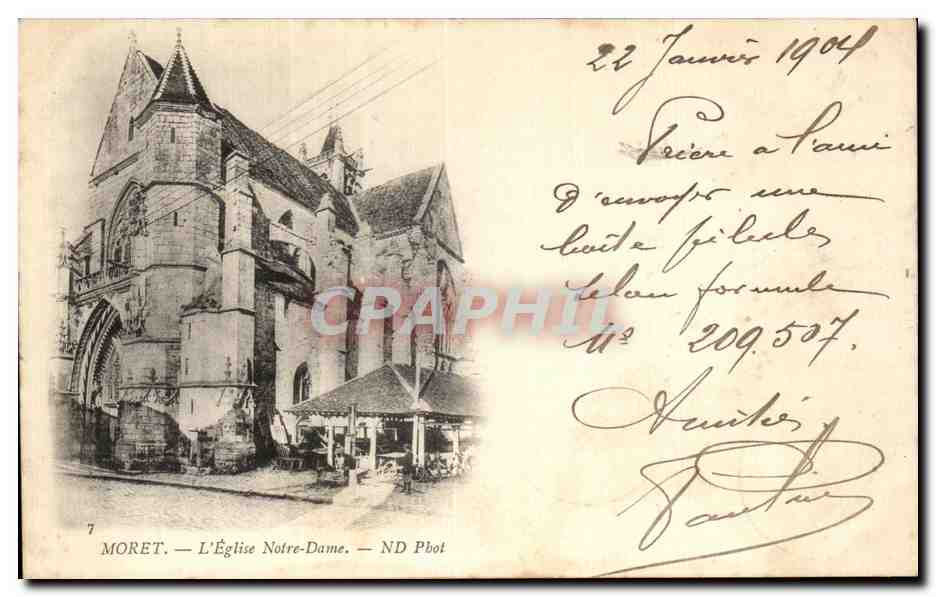 22 Janvier 1904
Prière a l'ami
d'envoyer une
boîte pilules
selon formule
N° 209.507.
Amitiés
CPAPHIL
7
MORET. — L'Église Notre-Dame. — ND Phot